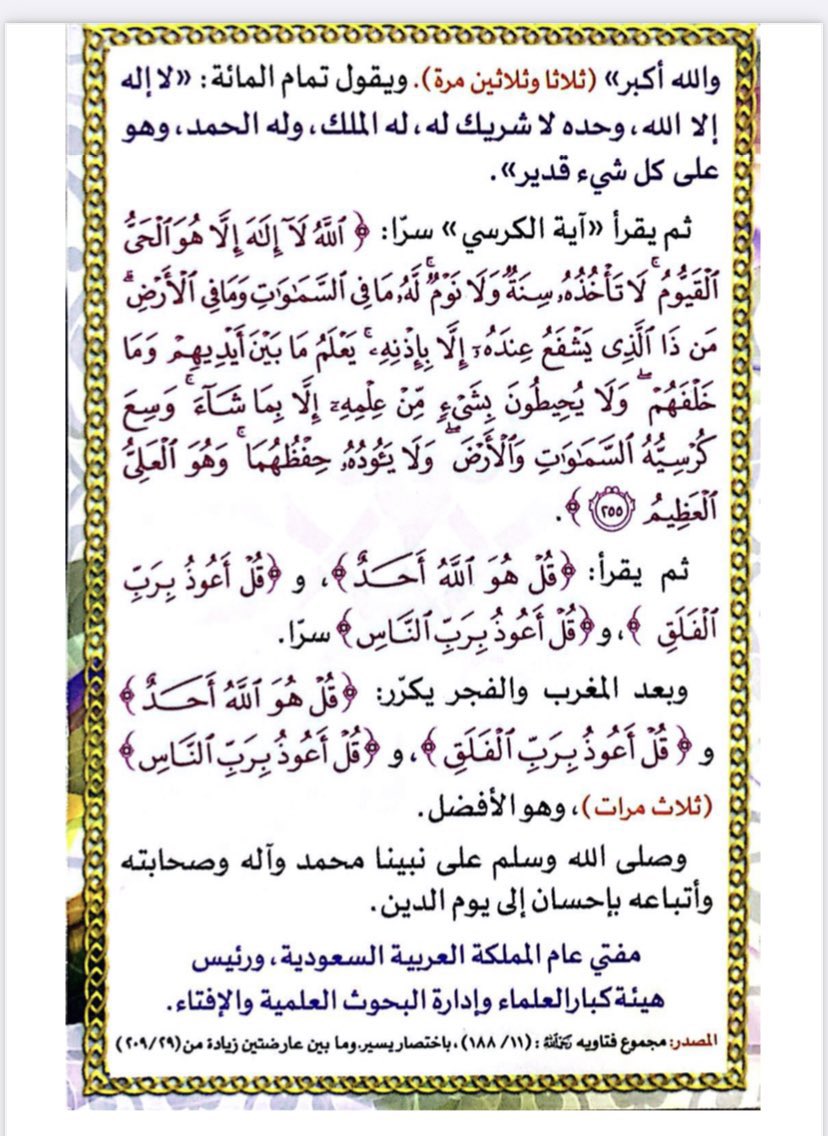 والله أكبر» (ثلاثا وثلاثين مرة). ويقول تمام المائة: «لا إله
إلا الله، وحده لا شريك له، له الملك، وله الحمد، وهو
على كل شيء قدير».
ثم يقرأ «آية الكرسي» سرّا: ﴿ ٱللَّهُ لَآ إِلَٰهَ إِلَّا هُوَ ٱلْحَىُّ
ٱلْقَيُّومُ ۚ لَا تَأْخُذُهُۥ سِنَةٌ وَلَا نَوْمٌ ۚ لَّهُۥ مَا فِى ٱلسَّمَٰوَٰتِ وَمَا فِى ٱلْأَرْضِ ۗ
مَن ذَا ٱلَّذِى يَشْفَعُ عِندَهُۥٓ إِلَّا بِإِذْنِهِۦ ۚ يَعْلَمُ مَا بَيْنَ أَيْدِيهِمْ وَمَا
خَلْفَهُمْ ۖ وَلَا يُحِيطُونَ بِشَىْءٍ مِّنْ عِلْمِهِۦٓ إِلَّا بِمَا شَآءَ ۚ وَسِعَ
كُرْسِيُّهُ ٱلسَّمَٰوَٰتِ وَٱلْأَرْضَ ۖ وَلَا يَـُٔودُهُۥ حِفْظُهُمَا ۚ وَهُوَ ٱلْعَلِىُّ
ٱلْعَظِيمُ ٢٥٥ ﴾.
ثم يقرأ: ﴿قُلْ هُوَ ٱللَّهُ أَحَدٌ﴾، و ﴿قُلْ أَعُوذُ بِرَبِّ
ٱلْفَلَقِ ﴾، و﴿قُلْ أَعُوذُ بِرَبِّ ٱلنَّاسِ﴾ سرّا.
وبعد المغرب والفجر يكرّر: ﴿قُلْ هُوَ ٱللَّهُ أَحَدٌ﴾
و ﴿قُلْ أَعُوذُ بِرَبِّ ٱلْفَلَقِ ﴾، و ﴿قُلْ أَعُوذُ بِرَبِّ ٱلنَّاسِ﴾
(ثلاث مرات)، وهو الأفضل.
وصلى الله وسلم على نبينا محمد وآله وصحابته
وأتباعه بإحسان إلى يوم الدين.
مفتي عام المملكة العربية السعودية، ورئيس
هيئة كبار العلماء وإدارة البحوث العلمية والإفتاء.
المصدر: مجموع فتاويه رَحِمَهُ ٱللَّهُ : (١١/ ١٨٨)، باختصار يسير. وما بين عارضتين زيادة من (٢٩/ ٢٠٩)